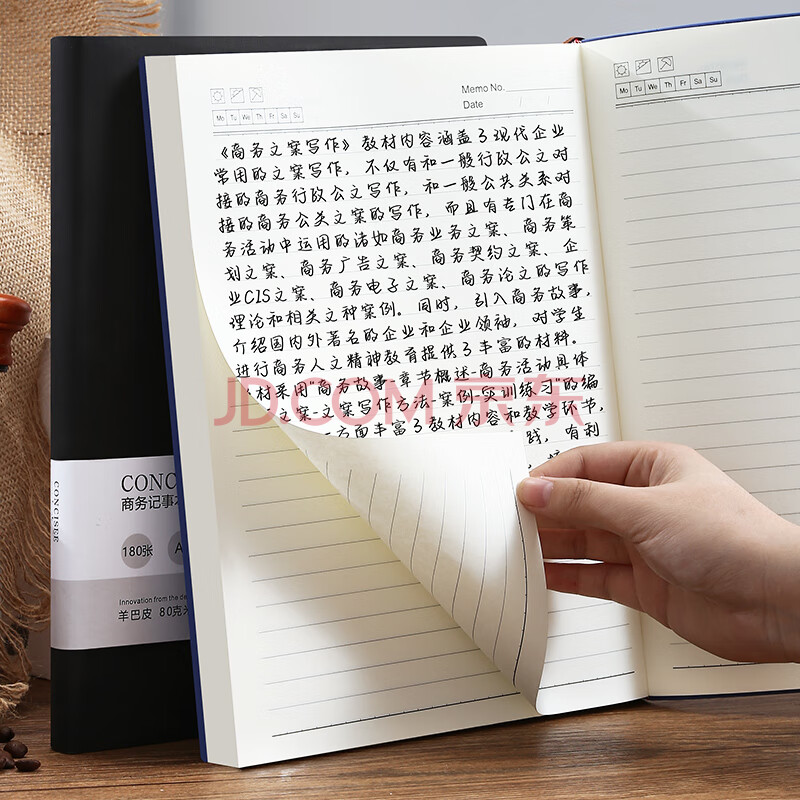 Memo No.
Date / /
Mo Tu We Th Fr Sa Su
Mo Tu We Th Fr Sa Su
《商务文案写作》教材内容涵盖了现代企业
常用的文案写作，不仅有和一般行政公文对
接的商务行政公文写作，和一般公共关系对
接的商务公关文案的写作，而且有专门在商
务活动中运用的诸如商务业务文案、商务策
划文案、商务广告文案、商务契约文案、企
业CIS文案、商务电子文案、商务论文的写作
理论和相关文种案例。同时，引入商务故事，
介绍国内外著名的企业和企业领袖，对学生
进行商务人文精神教育提供了丰富的材料。
材采用"商务故事-章节概述-商务活动具体
文案-文案写作方法-案例-实训练习"的编
方面丰富了教材内容和教学环节，
践，有利
JD.COM 京东
CONC
商务记事本
180张 A
Innovation from the de
羊巴皮 80克
CONCISER